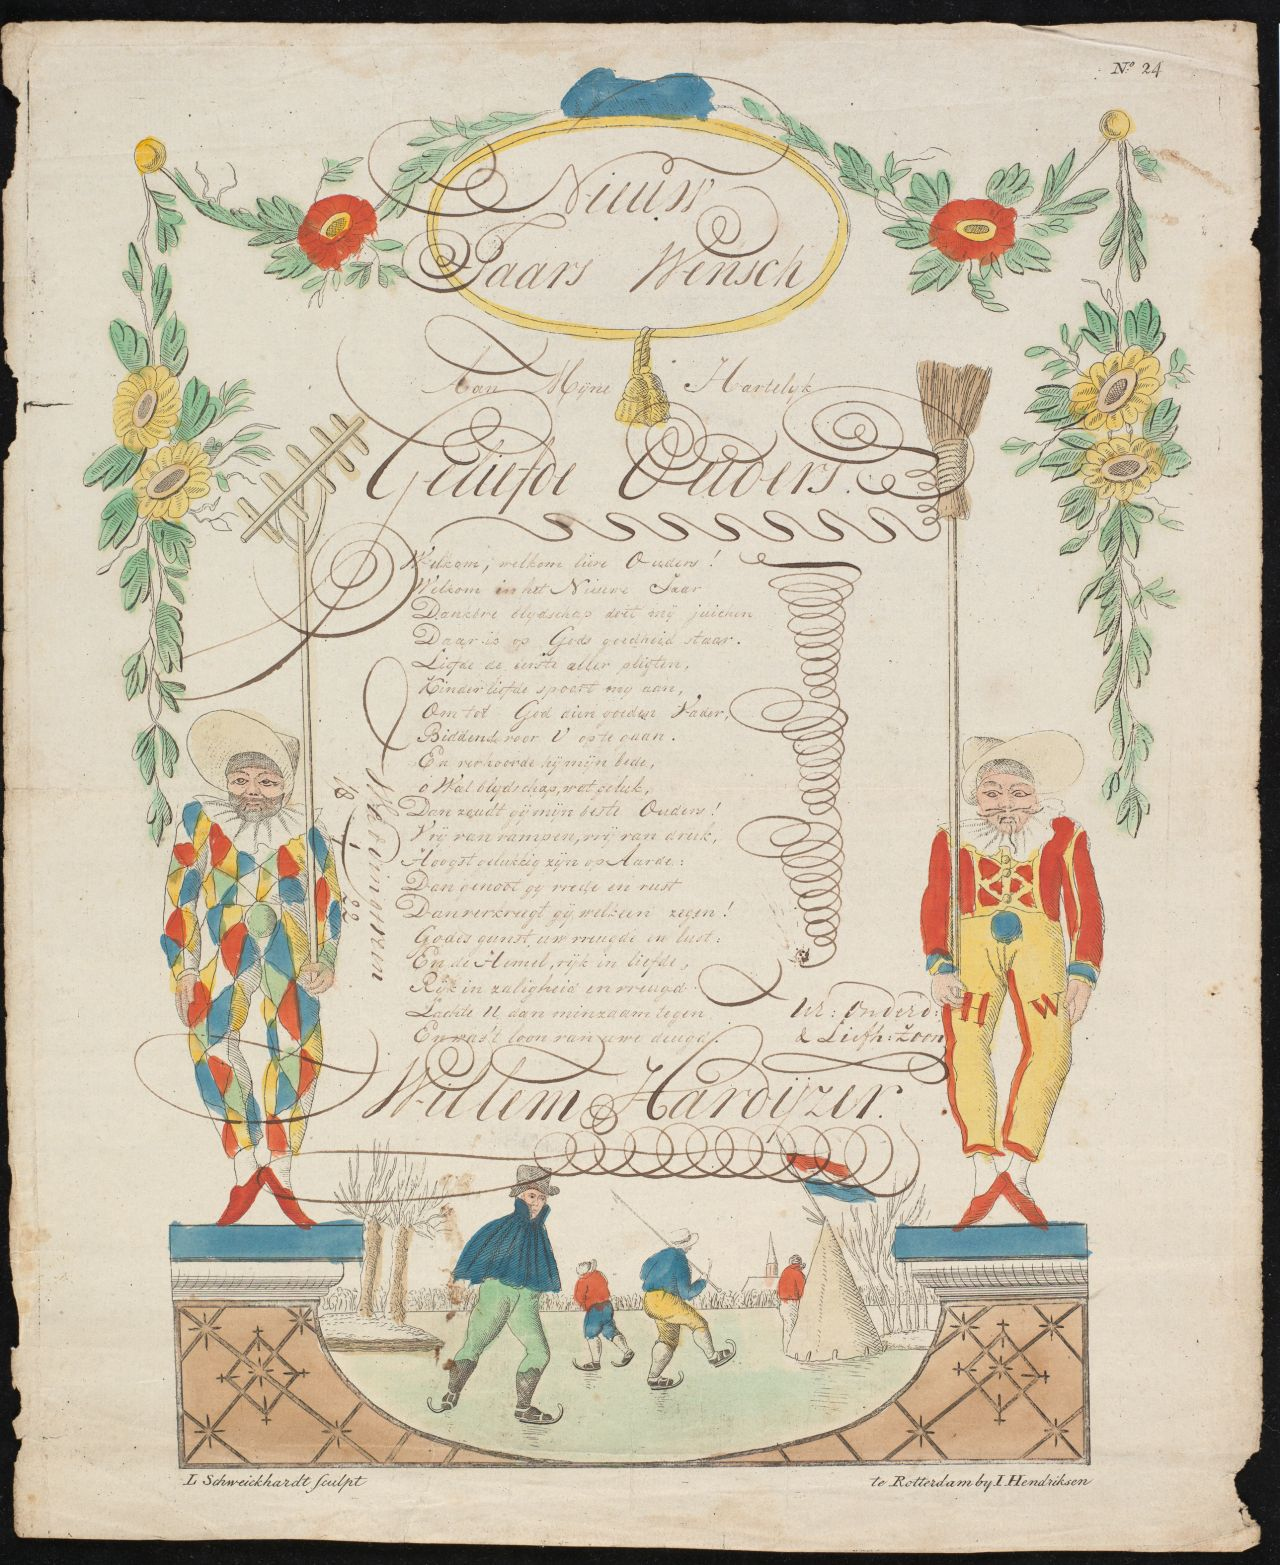 No. 24
Nieuw
Jaars Wensch
Aan Mijne Hartelijk
Geliefde Ouders.
Welkom, welkom lieve Ouders!
Welkom in het Nieuwe Jaar
Dankbre blydschap doet mij juichen
Daar is op Gods goedheid staar.
Liefde de eerste aller pligten,
Kinderliefde spoort my aan,
Om tot God dien goeden Vader,
Biddend voor U op te gaan.
En verhoorde hij mijn bede,
o Wat blydschap, wat geluk,
Dan zoudt gij mijn beste Ouders!
Vrij van rampen, vrij van druk,
Hoogst gelukkig zijn op Aarde:
Dan genoot gy vrede en rust
Dan verkreegt gij welk een zegen!
Godes gunst, uw vreugde en lust:
En de Hemel, rijk in liefde,
Rijk in zaligheid en vreugd
Lachte U, dan minzaam tegen
En was't loon van uwe deugd.
18 22
Uw: Onderd:
& Liefh: Zoon
Willem Hardijzer.
H W
L Schweickhardt sculpt
te Rotterdam by I Hendriksen